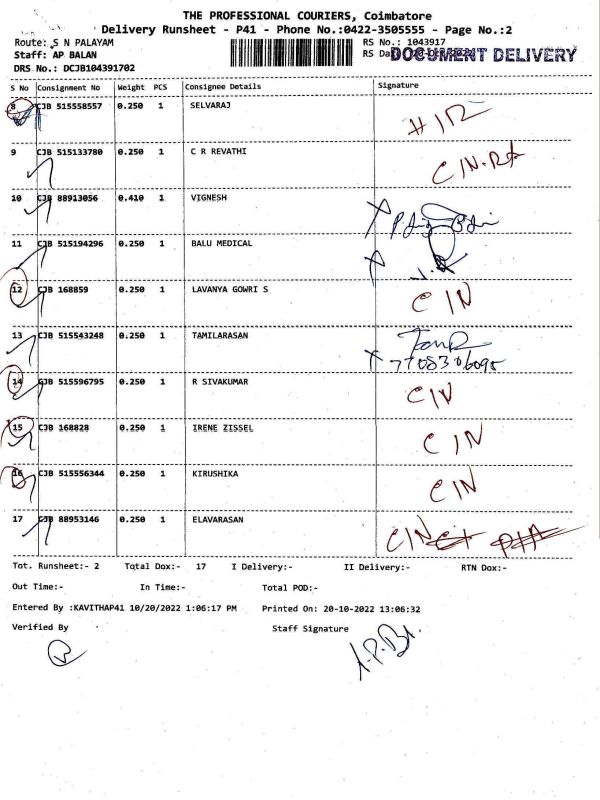 THE PROFESSIONAL COURIERS, Coimbatore
Delivery Runsheet - P41 - Phone No.:0422-3505555 - Page No.:2
Route: S N PALAYAM
RS No.: 1043917
Staff: AP BALAN
RS Da
DOCUMENT DELIVERY
DRS No.: DCJB104391702
S No Consignment No Weight PCS Consignee Details Signature
8 CJB 515558557 0.250 1 SELVARAJ
9 CJB 515133780 0.250 1 C R REVATHI
10 CJB 88913056 0.410 1 VIGNESH
11 CJB 515194296 0.250 1 BALU MEDICAL
12 CJB 168859 0.250 1 LAVANYA GOWRI S CIN
13 CJB 515543248 0.250 1 TAMILARASAN
14 CJB 515596795 0.250 1 R SIVAKUMAR CIN
15 CJB 168828 0.250 1 IRENE ZISSEL CIN
16 CJB 515556344 0.250 1 KIRUSHIKA CIN
17 CJB 88953146 0.250 1 ELAVARASAN CIN
Tot. Runsheet:- 2 Total Dox:- 17 I Delivery:- II Delivery:- RTN Dox:-
Out Time:- In Time:- Total POD:-
Entered By :KAVITHAP41 10/20/2022 1:06:17 PM Printed On: 20-10-2022 13:06:32
Verified By Staff Signature